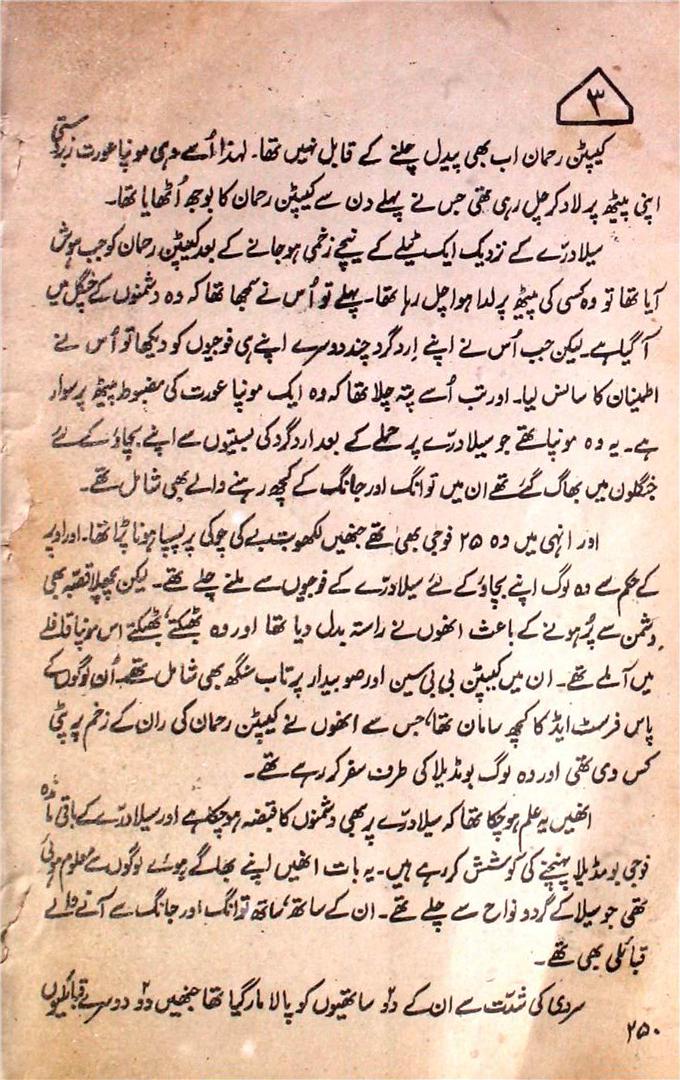 ۳
کیپٹن رحمان اب بھی پیدل چلنے کے قابل نہیں تھا۔ لہذا اُسے وہی مونپا عورت زبردستی
اپنی پیٹھ پر لاد کر چل رہی تھی جس نے پہلے دن سے کیپٹن رحمان کا بوجھ اُٹھایا تھا۔
سیلا درّے کے نزدیک ایک ٹیلے کے نیچے زخمی ہو جانے کے بعد کیپٹن رحمان کو جب ہوش
آیا تھا تو وہ کسی کی پیٹھ پر لدا ہوا چل رہا تھا۔ پہلے تو اُس نے سمجھا تھا کہ وہ دشمنوں کے چنگل میں
آ گیا ہے۔ لیکن جب اُس نے اپنے اِرد گرد چند دوسرے اپنے ہی فوجیوں کو دیکھا تو اُس نے
اطمینان کا سانس لیا۔ اور تب اُسے پتہ چلا تھا کہ وہ ایک مونپا عورت کی مضبوط پیٹھ پر سوار
ہے۔ یہ وہ مونپا تھے جو سیلا درّے پر حملے کے بعد ارد گرد کی بستیوں سے اپنے بچاؤ کے لئے
جنگلوں میں بھاگ گئے تھے ان میں توانگ اور جانگ کے کچھ رہنے والے بھی شامل تھے۔
اور انہی میں وہ ۲۵ فوجی بھی تھے جنھیں کی چوکی پر پسپا ہونا پڑا تھا۔ اور اوپر
کے حکم سے وہ لوگ اپنے بچاؤ کے لئے سیلا درّے کے فوجیوں سے ملنے چلے تھے۔ لیکن پچھلا قصبہ بھی
دشمن سے پُر ہونے کے باعث انھوں نے راستہ بدل دیا تھا اور وہ بھٹکتے بھٹکتے اس مونپا قافلے
میں آ ملے تھے۔ ان میں کیپٹن بی بی سین اور صوبیدار پرتاب سنگھ بھی شامل تھے۔ اُن لوگوں کے
پاس فرسٹ ایڈ کا کچھ سامان تھا، جس سے انھوں نے کیپٹن رحمان کی ران کے زخم پر پٹی
کس دی تھی اور وہ لوگ بومڈیلا کی طرف سفر کر رہے تھے۔
انھیں یہ علم ہو چکا تھا کہ سیلا درّے پر بھی دشمنوں کا قبضہ ہو چکا ہے اور سیلا درّے کے باقی ماندہ
فوجی بومڈیلا پہنچنے کی کوشش کر رہے ہیں۔ یہ بات انھیں اپنے بھاگے ہوئے لوگوں سے معلوم ہوئی
تھی جو سیلا کے گرد و نواح سے چلے تھے۔ ان کے ساتھ ساتھ توانگ اور جانگ سے آنے والے
قبائلی بھی تھے۔
سردی کی شدّت سے ان کے دو ساتھیوں کو پالا مار گیا تھا جنھیں دو دوسرے قبائلیوں
۲۵۰